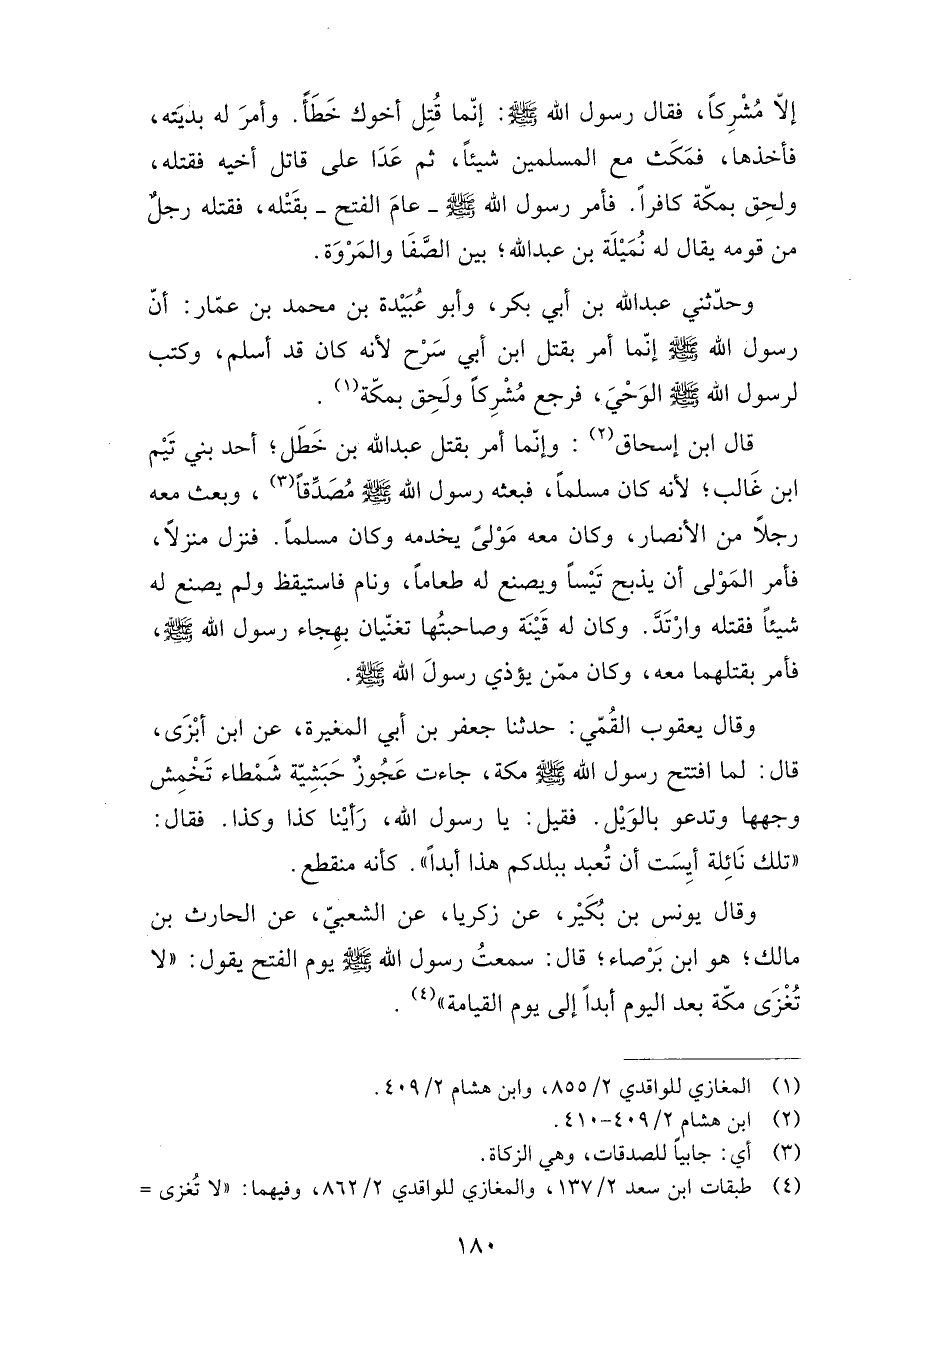 إلاّ مُشْرِكاً، فقال رسول الله ﷺ: إنّما قُتِل أخوك خَطَأً. وأمرَ له بديَته،
فأخذها، فمَكَث مع المسلمين شيئاً، ثم عَدَا على قاتل أخيه فقتله،
ولحق بمكّة كافراً. فأمر رسول الله ﷺ ـ عامَ الفتح ـ بقَتْله، فقتله رجلٌ
من قومه يقال له نُمَيْلَة بن عبدالله؛ بين الصَّفَا والمَرْوَة.
وحدّثني عبدالله بن أبي بكر، وأبو عُبَيْدة بن محمد بن عمّار: أنّ
رسول الله ﷺ إنّما أمر بقتل ابن أبي سَرْح لأنه كان قد أسلم، وكتب
لرسول الله ﷺ الوَحْيَ، فرجع مُشْرِكاً ولَحِق بمكّة(١) .
قال ابن إسحاق(٢) : وإنّما أمر بقتل عبدالله بن خَطَل؛ أحد بني تَيْم
ابن غَالب؛ لأنه كان مسلماً، فبعثه رسول الله ﷺ مُصَدِّقاً(٣) ، وبعث معه
رجلاً من الأنصار، وكان معه مَوْلىً يخدمه وكان مسلماً. فنزل منزلاً،
فأمر المَوْلى أن يذبح تَيْساً ويصنع له طعاماً، ونام فاستيقظ ولم يصنع له
شيئاً فقتله وارْتَدَّ. وكان له قَيْنَة وصاحبتُها تغنّيان بهِجاء رسول الله ﷺ،
فأمر بقتلهما معه، وكان ممّن يؤذي رسولَ الله ﷺ.
وقال يعقوب القُمّي: حدثنا جعفر بن أبي المغيرة، عن ابن أبْزَى،
قال: لما افتتح رسول الله ﷺ مكة، جاءت عَجُوزٌ حَبَشِيّة شَمْطاء تَخْمِش
وجهها وتدعو بالوَيْل. فقيل: يا رسول الله، رَأَيْنا كذا وكذا. فقال:
«تلك نَائِلة أَيِسَت أن تُعبد ببلدكم هذا أبداً». كأنه منقطع.
وقال يونس بن بُكَيْر، عن زكريا، عن الشعبيّ، عن الحارث بن
مالك؛ هو ابن بَرْصاء؛ قال: سمعتُ رسول الله ﷺ يوم الفتح يقول: «لا
تُغْزَى مكّة بعد اليوم أبداً إلى يوم القيامة»(٤) .
(١) المغازي للواقدي ٢/ ٨٥٥، وابن هشام ٢/ ٤٠٩.
(٢) ابن هشام ٢/ ٤٠٩-٤١٠.
(٣) أي: جابياً للصدقات، وهي الزكاة.
(٤) طبقات ابن سعد ٢/ ١٣٧، والمغازي للواقدي ٢/ ٨٦٢، وفيهما: «لا تُغزى =
١٨٠